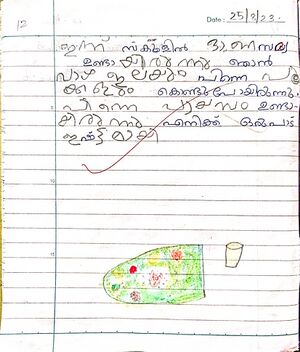 12
Date: 25/8/23
ഇന്ന് സ്കൂളിൽ ഓണസദ്യ
ഉണ്ടായിരുന്നു ഞാൻ
വാഴ ഇലയും പിന്നെ
കൊണ്ടുപോയിരുന്നു.
പിന്നെ പായസം ഉണ്ടാ
യിരുന്നു എനിക്ക് ഒരുപാട്
ഇഷ്ട്ട മായി